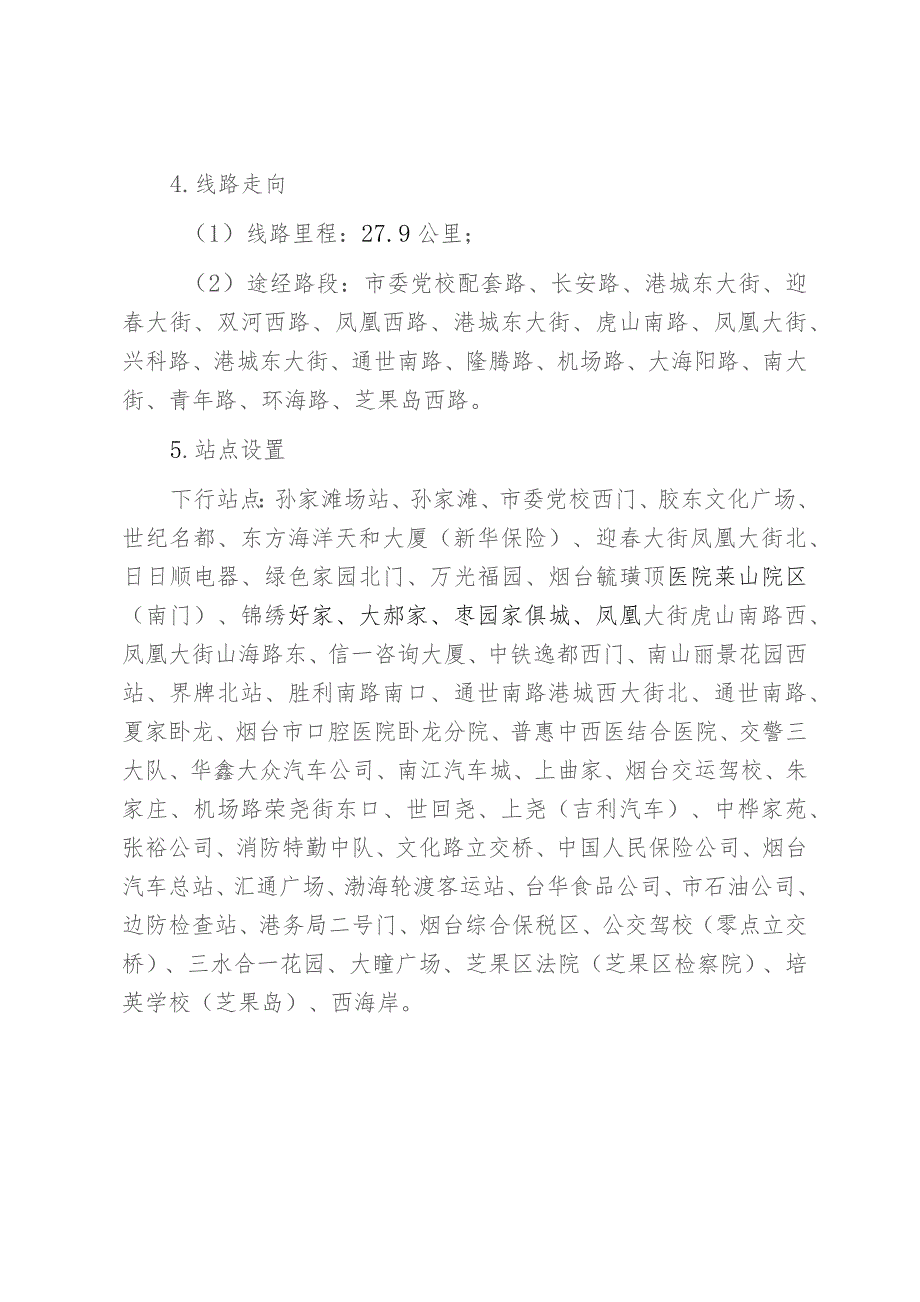 4.线路走向
（1）线路里程：27.9公里；
（2）途经路段：市委党校配套路、长安路、港城东大街、迎
春大街、双河西路、凤凰西路、港城东大街、虎山南路、凤凰大街、
兴科路、港城东大街、通世南路、隆腾路、机场路、大海阳路、南大
街、青年路、环海路、芝果岛西路。
5.站点设置
下行站点：孙家滩场站、孙家滩、市委党校西门、胶东文化广场、
世纪名都、东方海洋天和大厦（新华保险）、迎春大街凤凰大街北、
日日顺电器、绿色家园北门、万光福园、烟台毓璜顶医院莱山院区
（南门）、锦绣好家、大郝家、枣园家俱城、凤凰大街虎山南路西、
凤凰大街山海路东、信一咨询大厦、中铁逸都西门、南山丽景花园西
站、界牌北站、胜利南路南口、通世南路港城西大街北、通世南路、
夏家卧龙、烟台市口腔医院卧龙分院、普惠中西医结合医院、交警三
大队、华鑫大众汽车公司、南江汽车城、上曲家、烟台交运驾校、朱
家庄、机场路荣尧街东口、世回尧、上尧（吉利汽车）、中桦家苑、
张裕公司、消防特勤中队、文化路立交桥、中国人民保险公司、烟台
汽车总站、汇通广场、渤海轮渡客运站、台华食品公司、市石油公司、
边防检查站、港务局二号门、烟台综合保税区、公交驾校（零点立交
桥）、三水合一花园、大瞳广场、芝果区法院（芝果区检察院）、培
英学校（芝果岛）、西海岸。